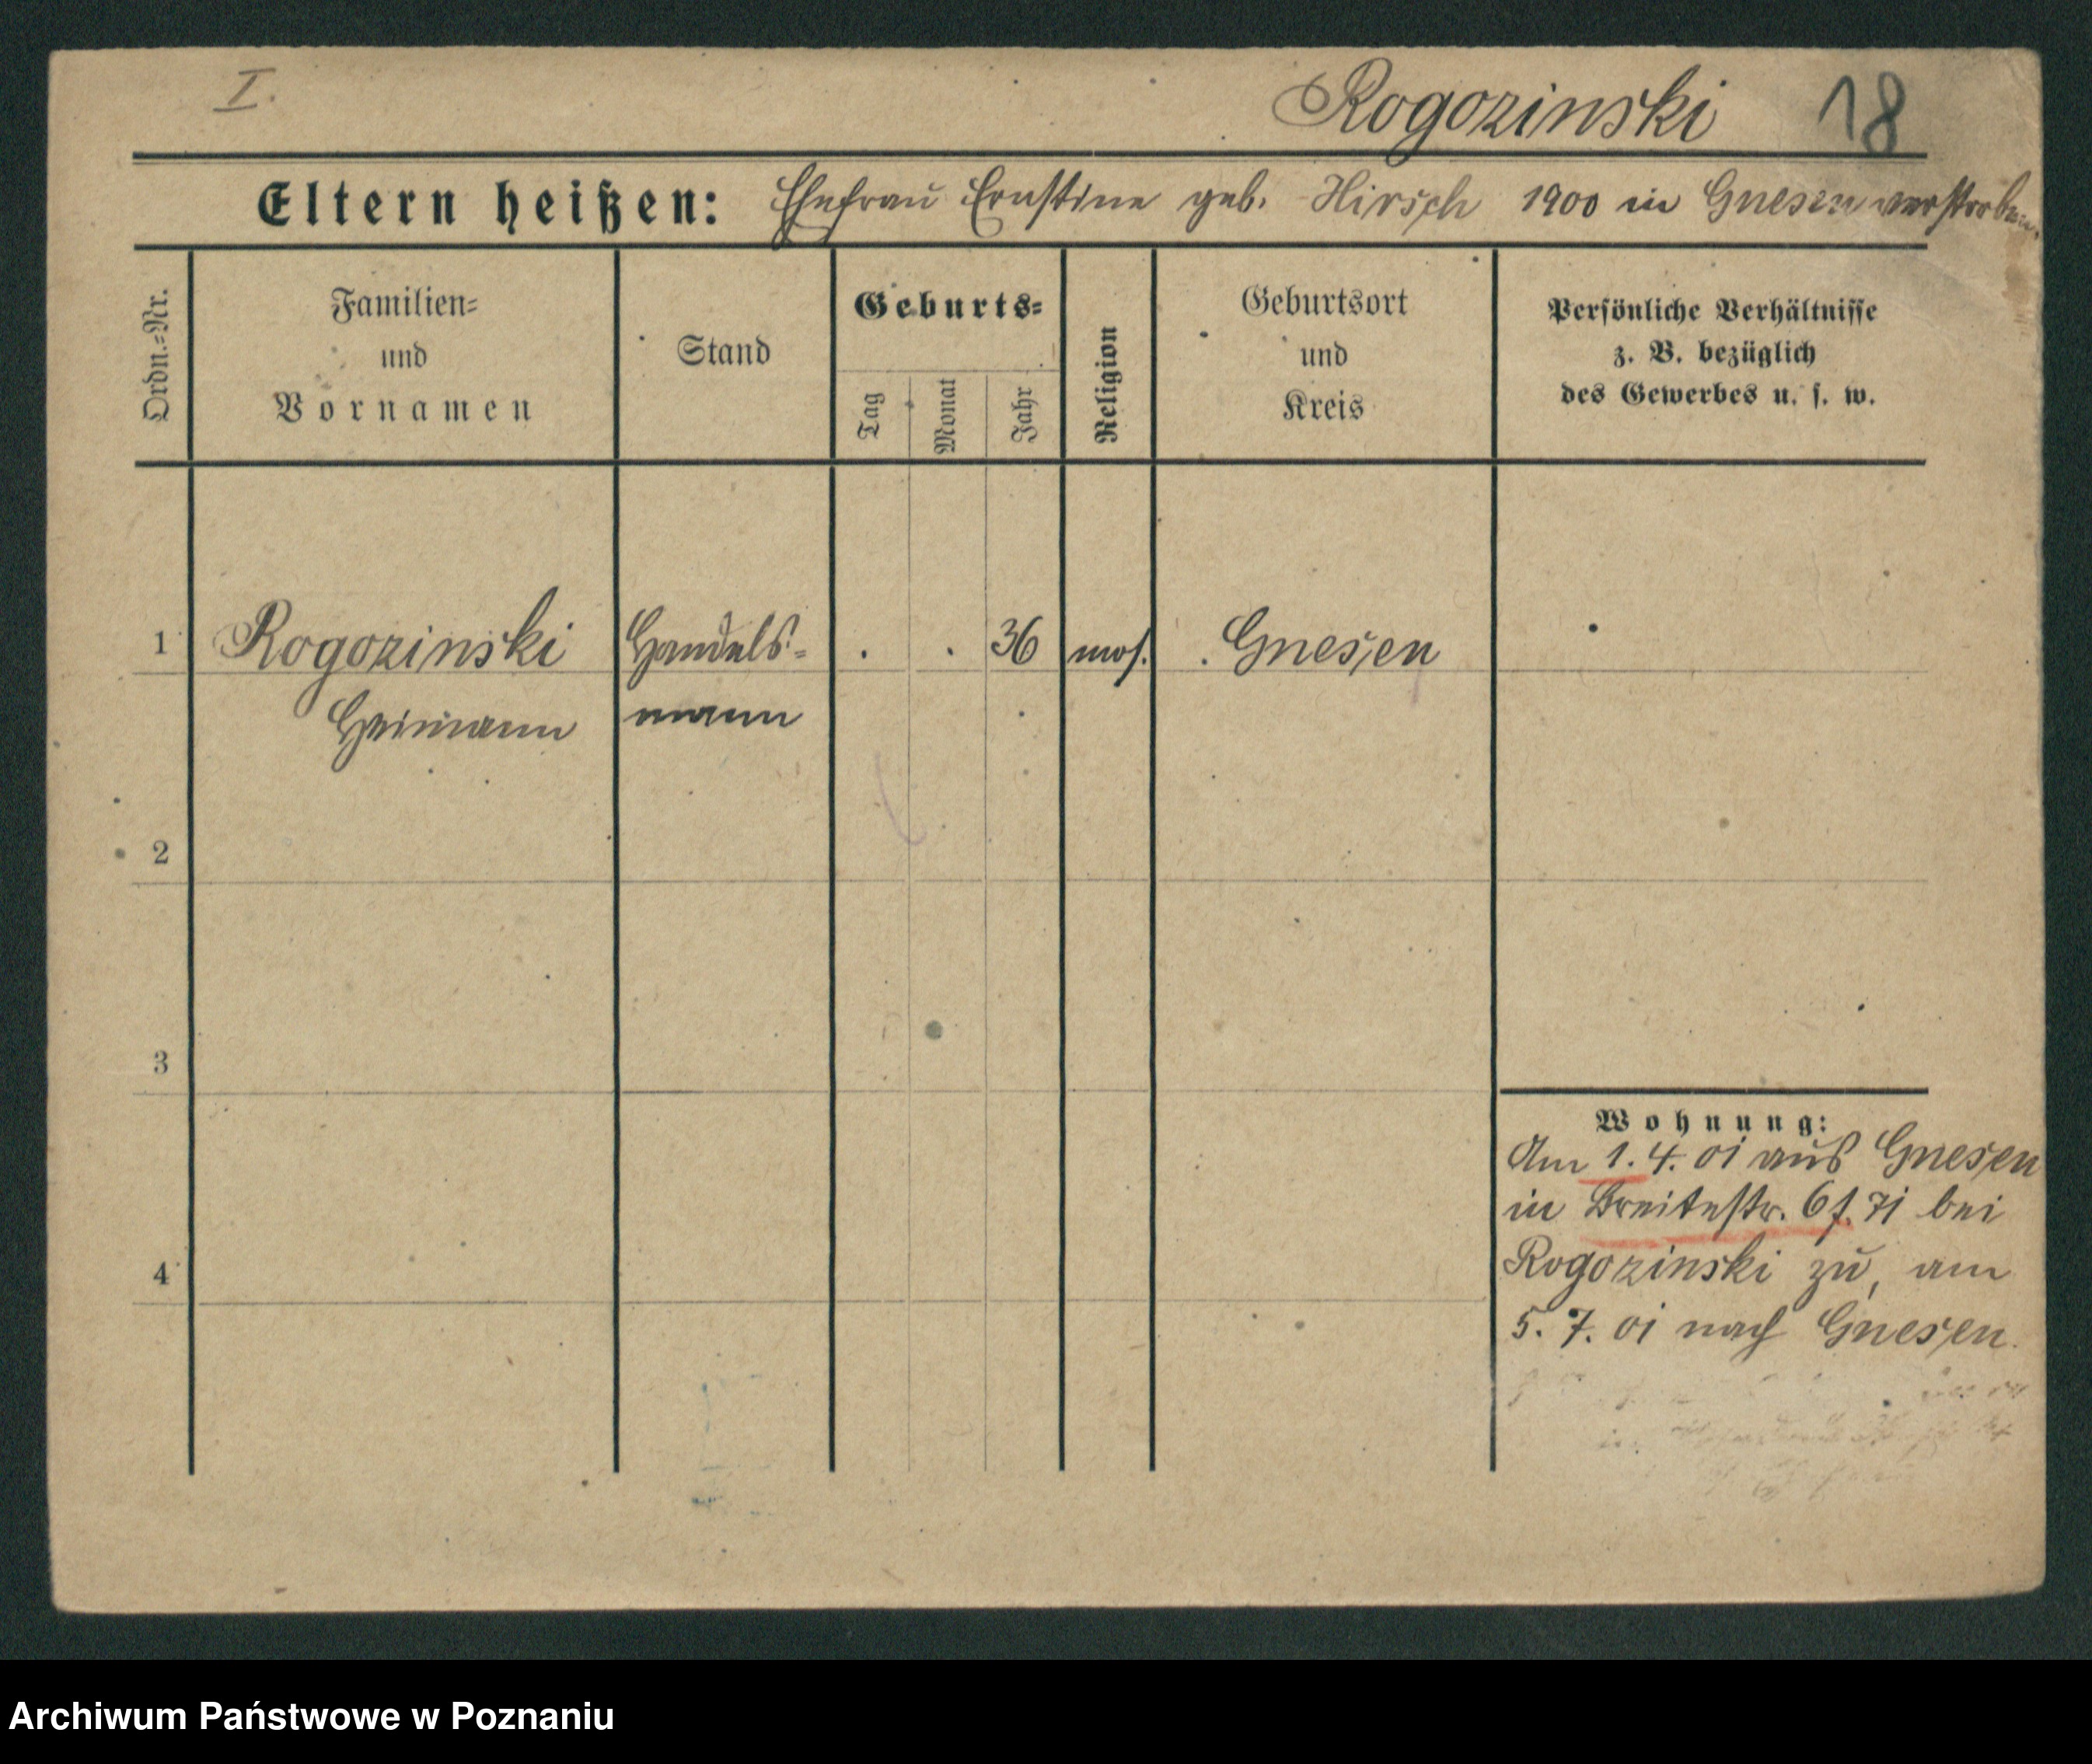 I.
Rogozinski 18
Eltern heißen: Ehefrau Ernstine geb. Hirsch 1900 in Gnesen verstorben.
Ordn.-Nr.
Familien-
und
Vornamen
Stand
Geburts-
Tag
Monat
Jahr
Religion
Geburtsort
und
Kreis
Persönliche Verhältnisse
z. B. bezüglich
des Gewerbes u. s. w.
1 Rogozinski Handels- . . 36 mos. Gnesen
Heimann mann
2
3
4
Wohnung:
Am 1. 4. 01 aus Gnesen
in Breitestr. bei
Rogozinski zu, am
5. 7. 01 nach Gnesen.
Archiwum Państwowe w Poznaniu